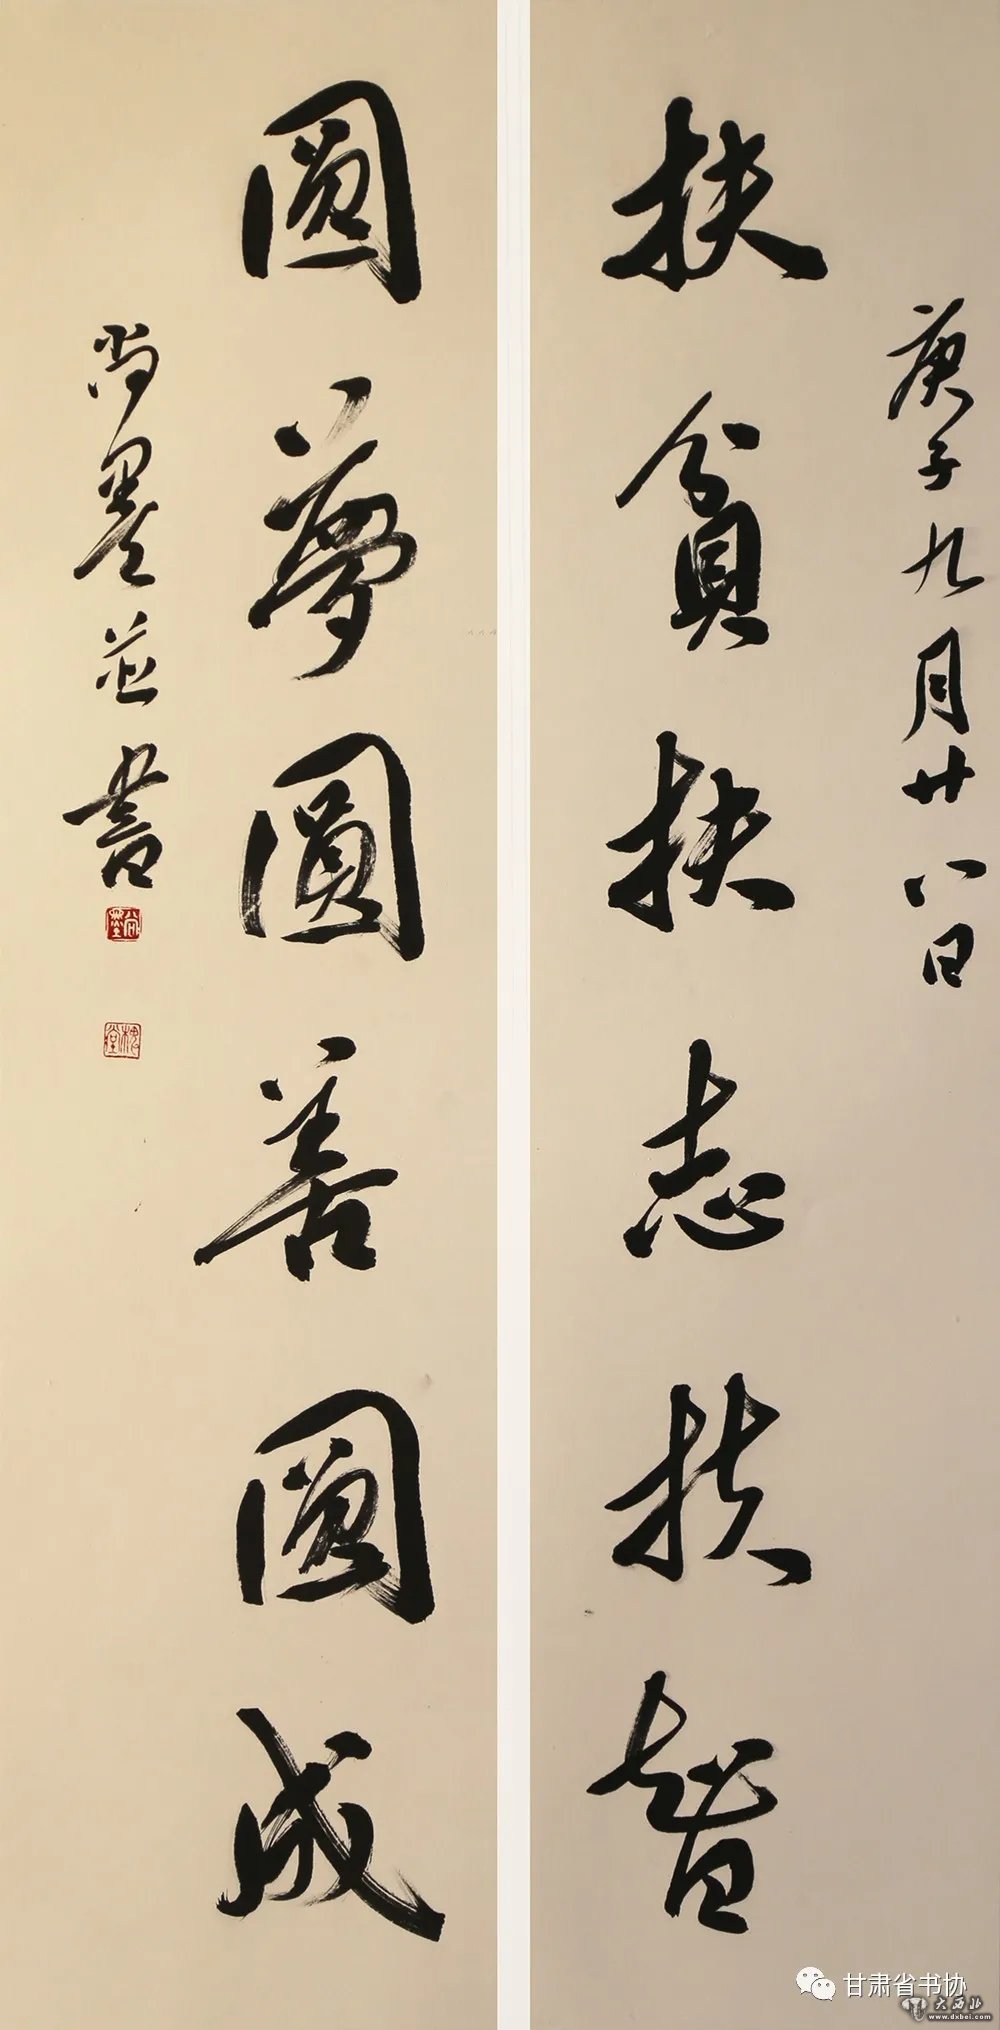 庚子九月廿八日
扶貧扶志扶智
圓夢圓善圓成
尚墨並書
尚墨
槐堂
甘肃省书协
大西北
www.dxbei.com